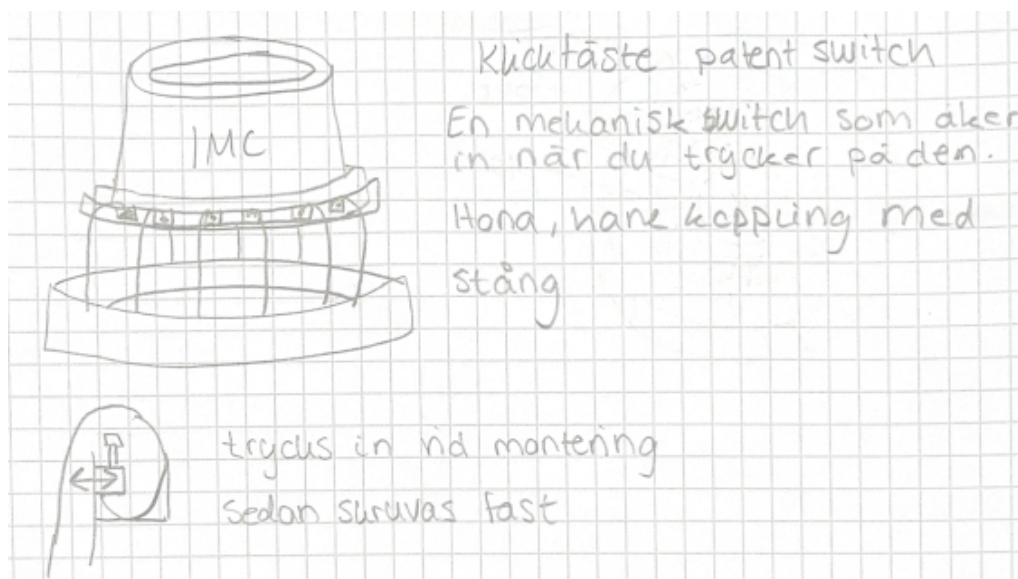 Klickfäste patent switch
IMC
En mekanisk switch som åker
in när du trycker på den.
Hona, hane koppling med
stång
trycks in vid montering
sedan skruvas fast